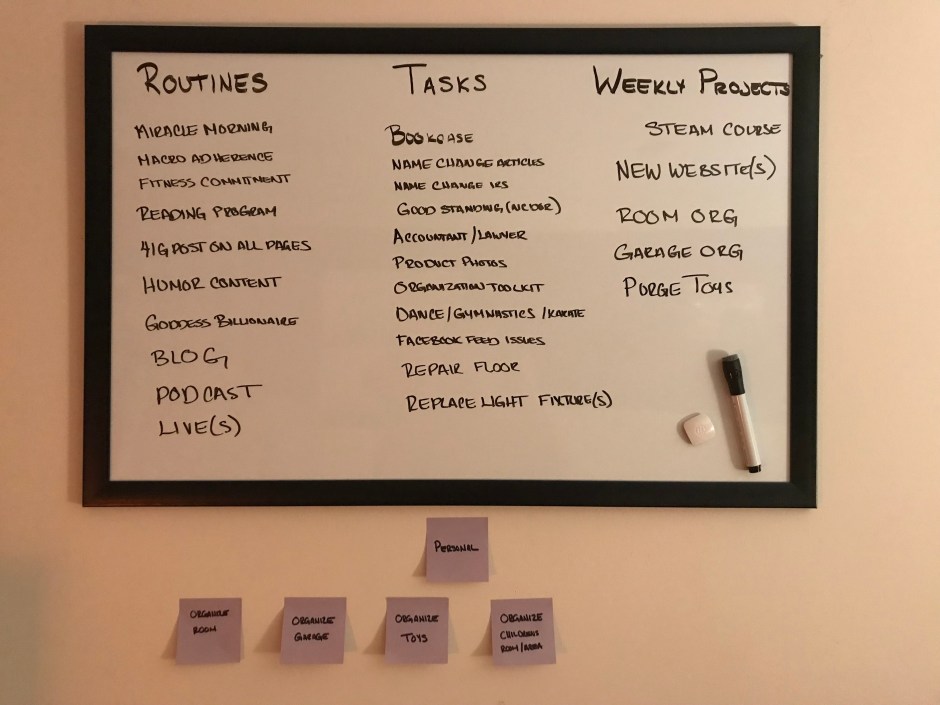 ROUTINES
MIRACLE MORNING
MACRO ADHERENCE
FITNESS COMMITMENT
READING PROGRAM
4IG POST ON ALL PAGES
HUMOR CONTENT
GODDESS BILLIONAIRE
BLOG
PODCAST
LIVE(S)
TASKS
BOOKCASE
NAME CHANGE ARTICLES
NAME CHANGE IRS
GOOD STANDING (NCDOR)
ACCOUNTANT/LAWYER
PRODUCT PHOTOS
ORGANIZATION TOOLKIT
DANCE/GYMNASTICS/KARATE
FACEBOOK FEED ISSUES
REPAIR FLOOR
REPLACE LIGHT FIXTURE(S)
WEEKLY PROJECTS
STEAM COURSE
NEW WEBSITE(S)
ROOM ORG
GARAGE ORG
PURGE TOYS
PERSONAL
ORGANIZE
ROOM
ORGANIZE
GARAGE
ORGANIZE
TOYS
ORGANIZE
CHILDRENS
ROOM/AREA